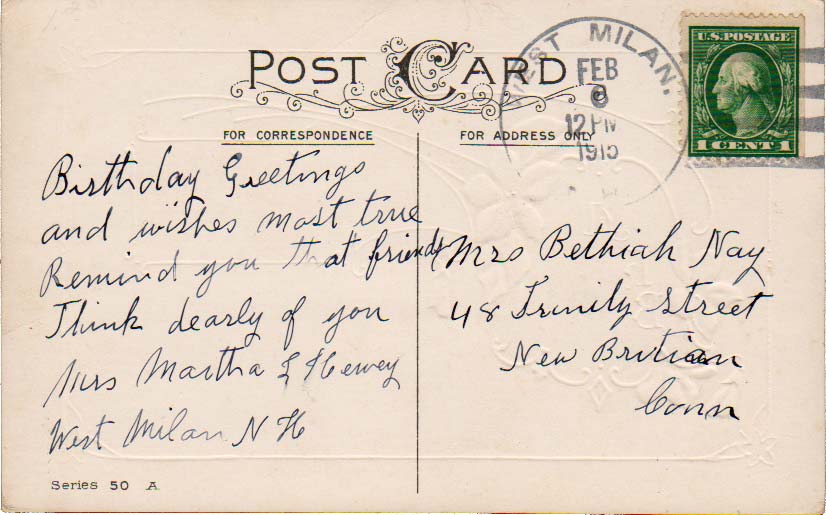 POST CARD
FOR CORRESPONDENCE
FOR ADDRESS ONLY
WEST MILAN.
FEB
12 PM
U.S. POSTAGE
1 CENT 1
Birthday Greetings
and wishes most true
Remind you that friends
Think dearly of you
Mrs Martha L Hewey
West Milan N H
Mrs Bethiah Nay
48 Trinity Street
New Britian
Conn
Series 50 A